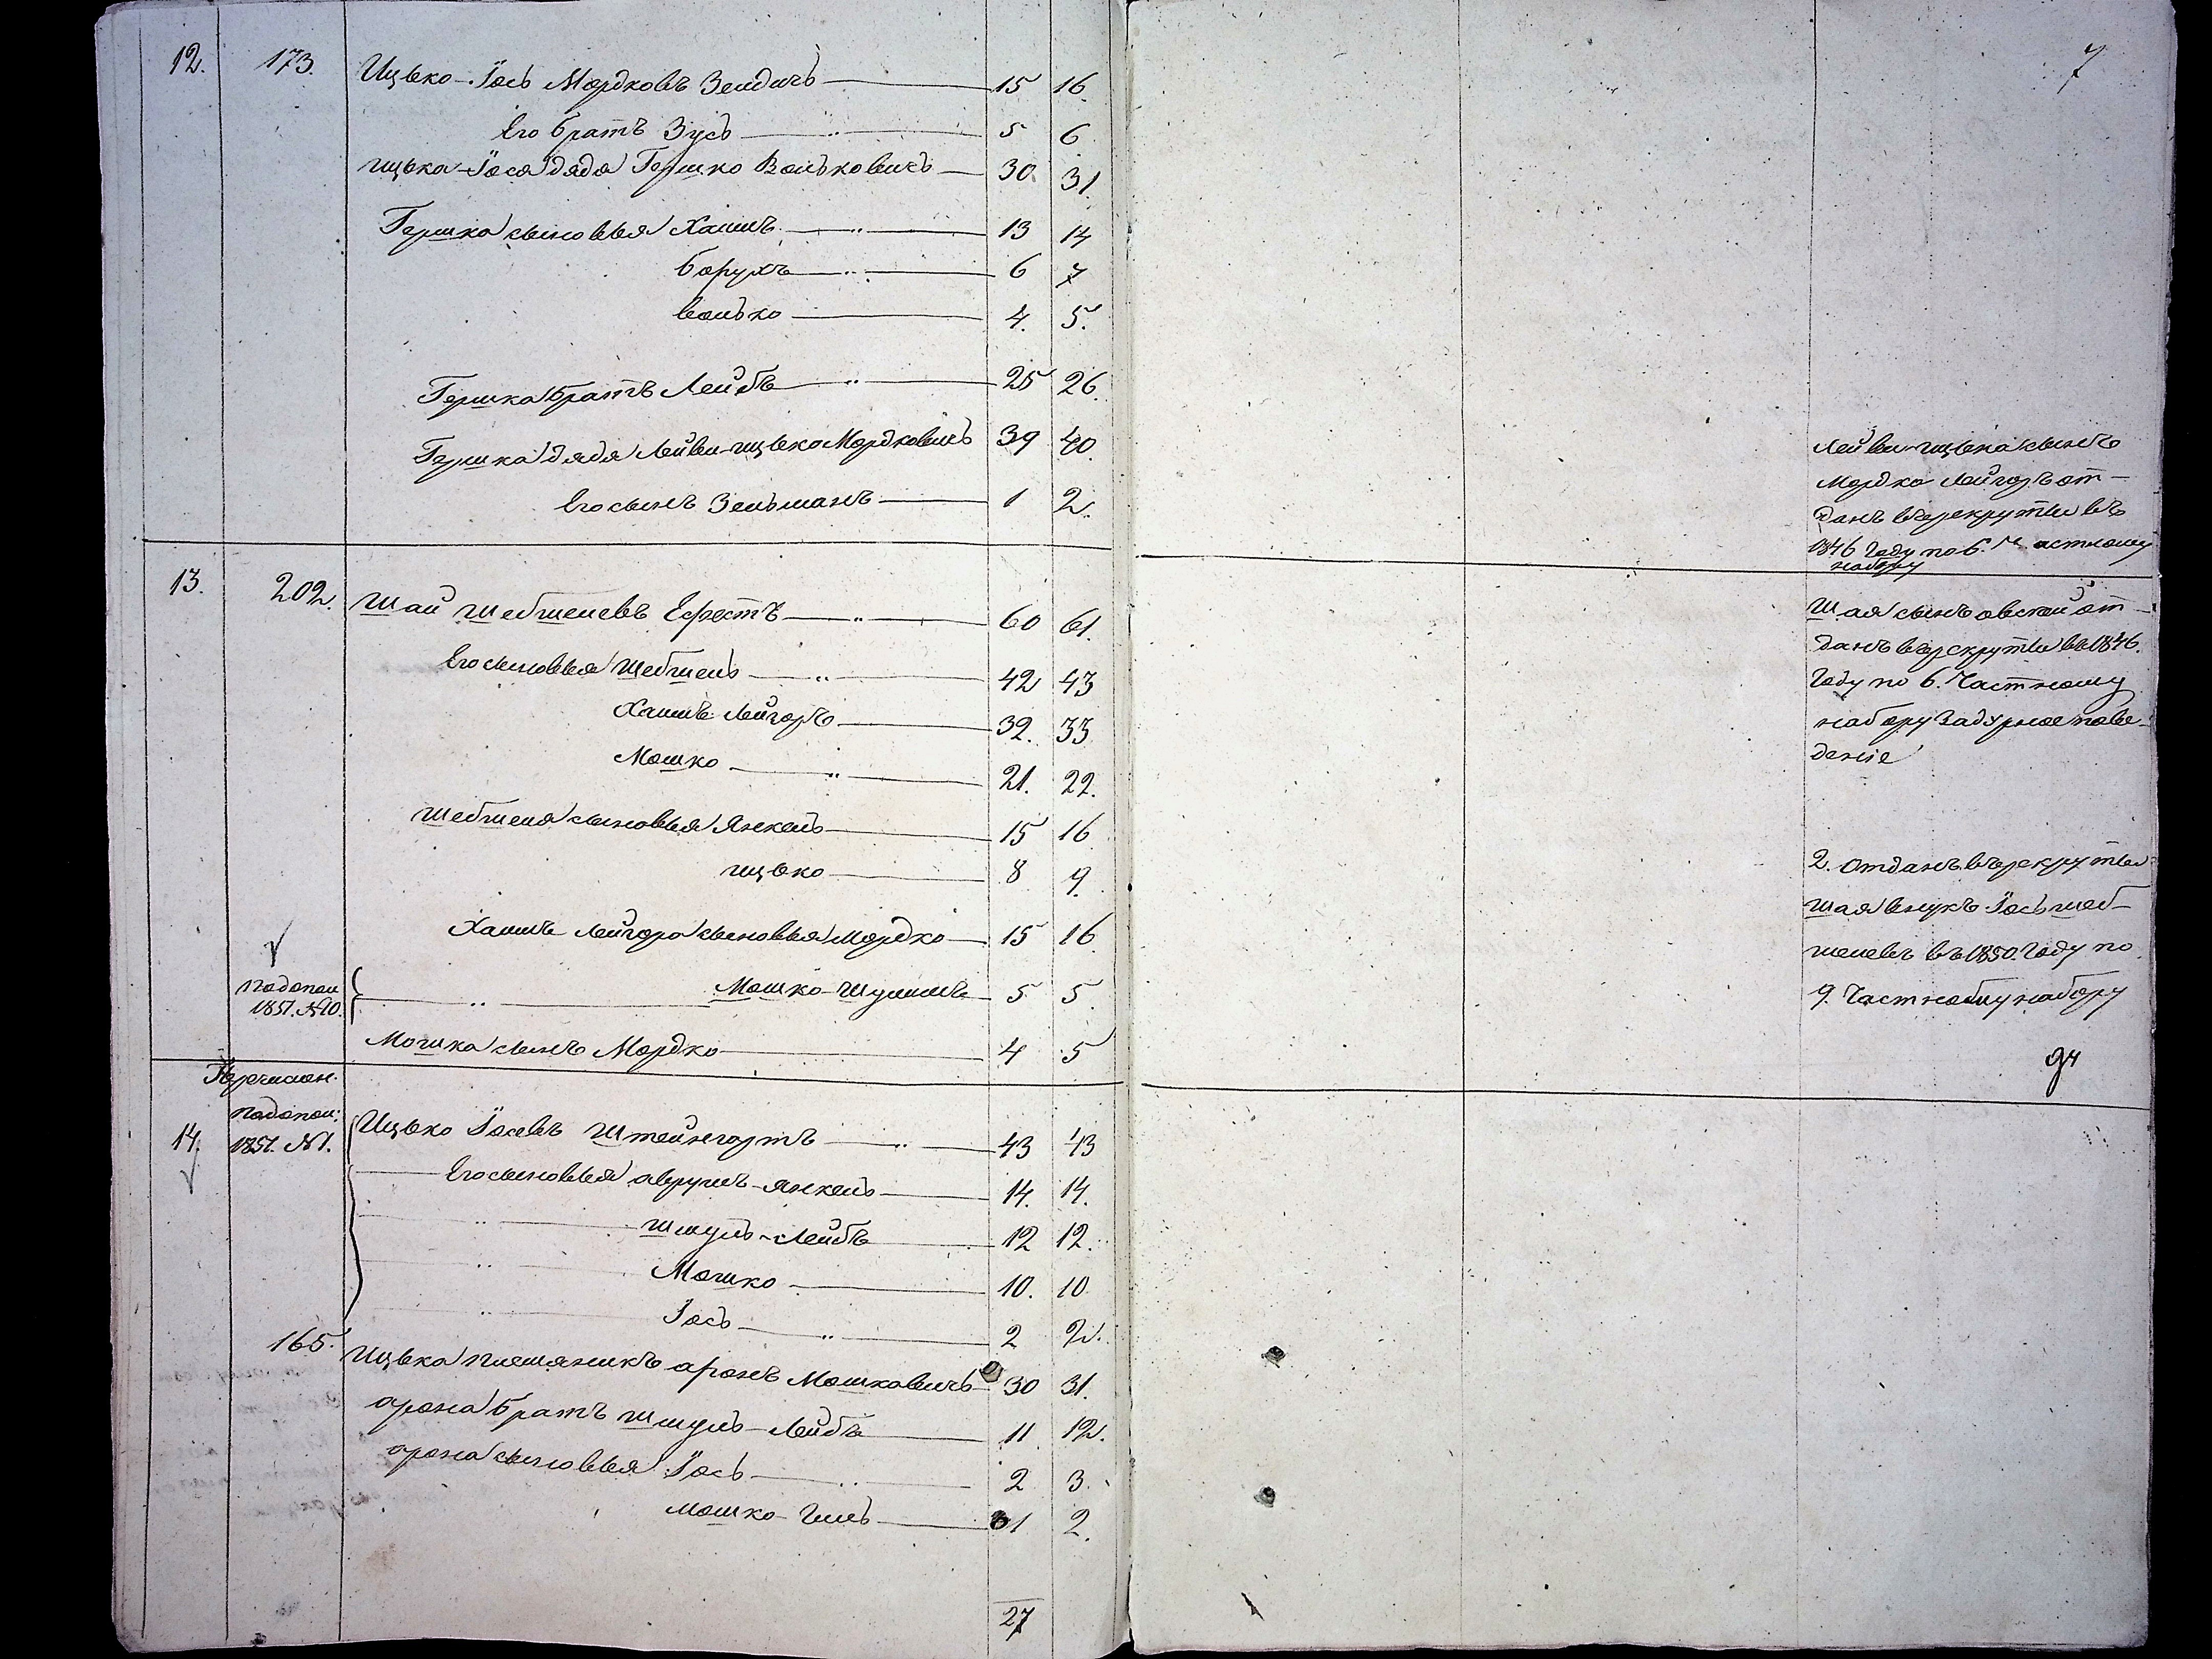 7
12. 173. Ицько-Іось Мордковъ Зейдичъ 15 16
Его братъ Зусь 5 6
Ицька-Іося дядя Гершко Вольковичъ 30 31.
Гершка сыновья Хаимъ 13 14
Борухъ 6 7
Волько 4. 5.
Гершка братъ Лейбъ 25 26.
Гершка дядя Лейви-Ицько Мордковичъ 39 40.
Его сынъ Зельманъ 1 2.
Лейви-Ицька сынъ
Мордко Лейзоръ от-
данъ въ рекруты въ
1846 году по 6. Частному
набору
13. 202. Шай Шебшелевъ 60 61.
Его сыновья Шебшель 42 43
Хаимъ Лейзоръ 32. 33
Мошко 21. 22.
Шебшеля сыновья Янкель 15 16
Ицько 8 9.
Хаимъ Лейзора сыновья Мордко 15 16
по допол. 1851. №10. Мошко-Шулимъ 5 5
Мошка сынъ Мордко 4 5
Шая сынъ Овсей от-
данъ въ рекруты въ 1846.
году по 6. Частному
набору за дурное пове-
деніе
2. Отданъ въ рекруты
Шая внукъ Іось Шеб-
шелевъ въ 1850. году по
9. Частному набору
14. Перечислен. по допол: 1851. №1. Ицько Іосевъ Штейнгартъ 43 43
Его сыновья Аврумъ-Янкель 14. 14.
Шмуль-Лейбъ 12 12.
Мошко 10. 10
Іось 2 2.
165. Ицька племяникъ Аронъ Мошковичъ 30 31.
Арона братъ Шмуль-Лейбъ 11 12.
Арона сыновья Іось 2 3.
Мошко-Гиль 1 2.
27